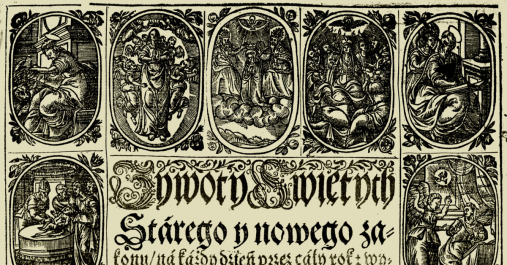 Zywoty Swiętych
Stárego y nowego za-
konu/ ná káżdy dźień przez cáły rok: wy-